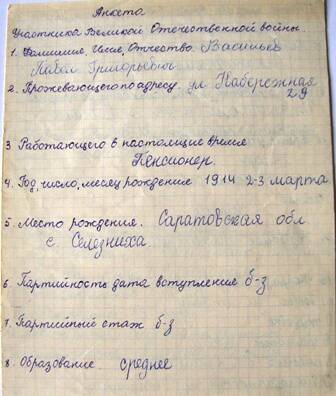 Анкета
Участника Великой Отечественной войны.
1. Фамилия, Имя, Отчество. Васильев
Павел Григорьевич
2. Проживающего по адресу. ул Набережная
29
3 Работающего в настоящие время
Пенсионер.
4. Год, число, месяц рождение 1914 2-3 марта
5. Место рождения. Саратовская обл
с. Селезниха.
6. Партийность дата вступления б-з
7. Партийный стаж б-з
8. Образование. среднее